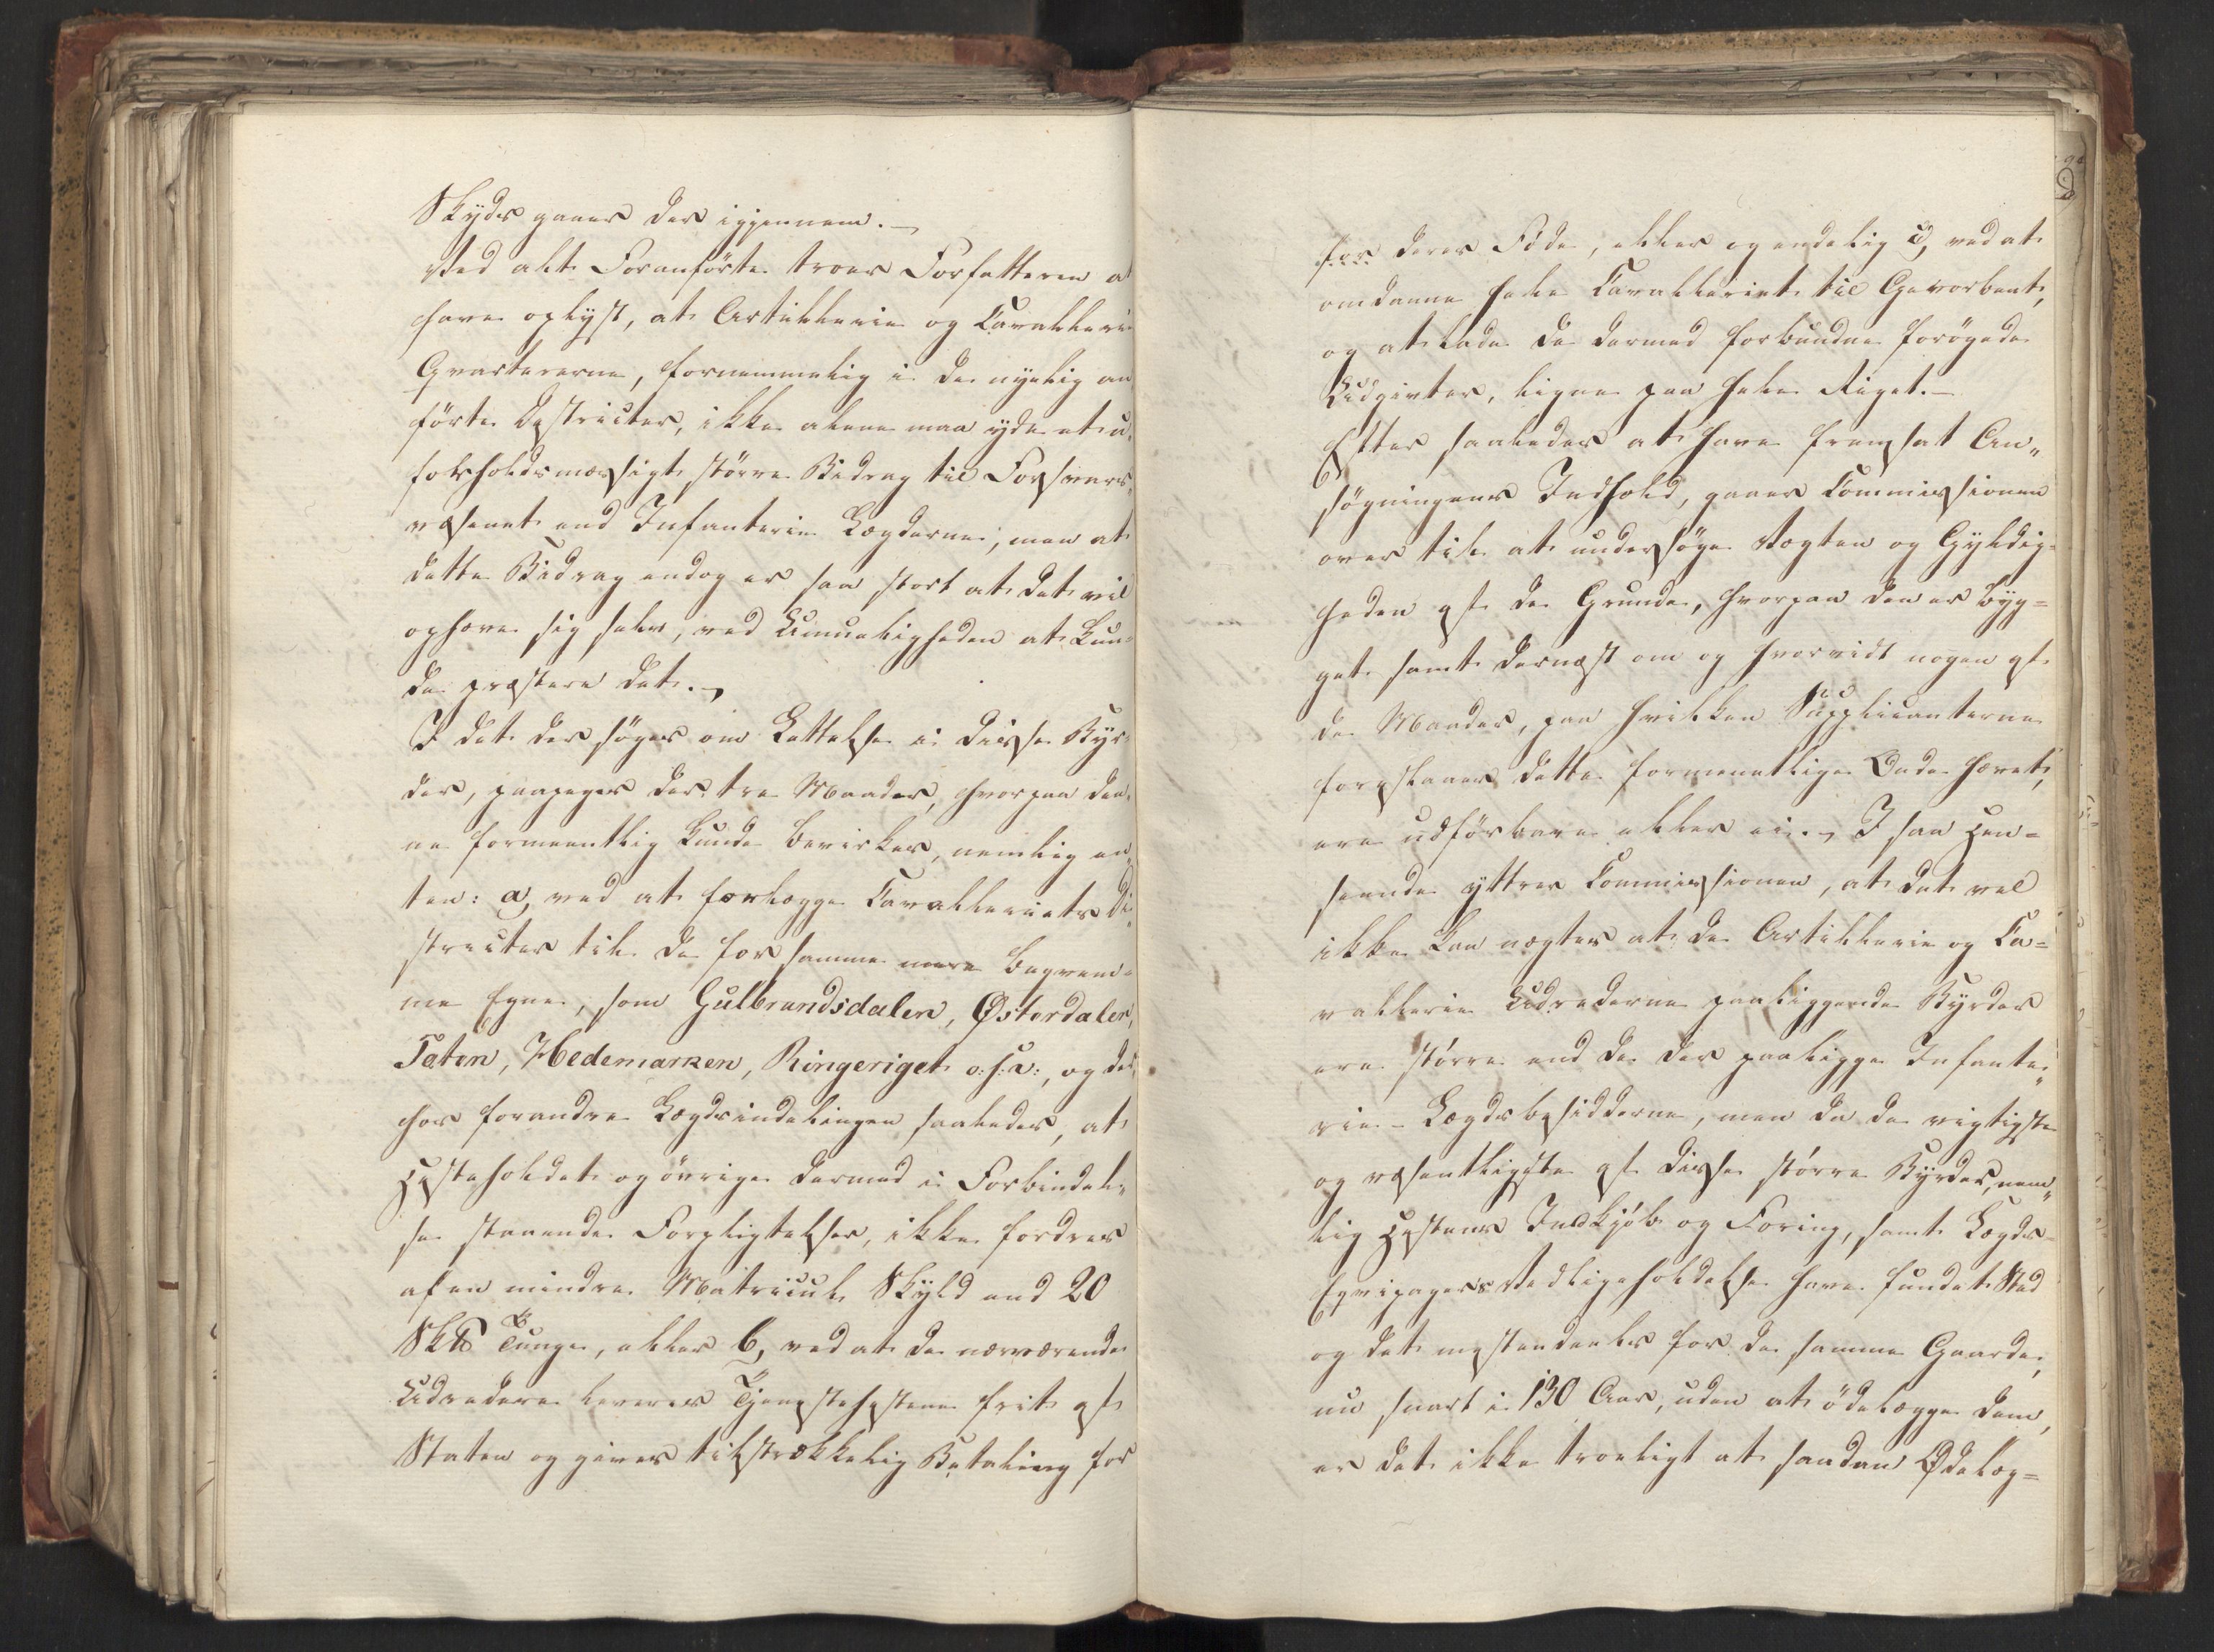 Skyds gaaer der igjennem. –
Ved alt Foranførte troer Forfatteren a
have oplyst, at Artillerie og Cavallerie
Qvartererne, fornemmelig i de nyelig an
førte Districter, ikke alene maa yde et u„
forholdsmæssigt større Bidrag til Forsvars„
væsenet end Infanterie Lægderne, men at
dette Bidrag endog er saa stort at det vil
ophæve sig selv, ved Umueligheden at kun„
de præstere det. –
I det der søges om Lettelse i disse Byr„
der, paapeges der tre Maader, hvorpaa den„
ne formeentlig kunde bevirkes, nemlig en„
ten: a, ved at forlægge Cavalleriets Di„
stricter til de for samme mere beqvem„
me Egne, som Gulbrandsdalen, Østerdalen,
Toten, Hedemarken, Ringeriget o: s: v:, og der„
hos forandre Lægdsindelingen saaledes, at
Hesteholdet og øvrige dermed i Forbindel„
se staaende Forpligtelser, ikke fordres
af en mindre Matricul Skyld end 20
Sk℔ Tunge, eller b, ved at de nærværende
Udredere leveres Tjenestehestene frit af
Staten og gives tilstrækkelig Betaling for
for deres Föde, eller og endelig c, ved at
omdanne hele Cavalleriet til Gevorbent,
og at lade de dermed forbundne forøgede
Udgivter, ligne paa hele Riget. –
Efter saaledes at have fremsat An„
søgningens Indhold, gaaer Commissionen
over til at undersøge Vægten og Gyldig„
heden af de Grunde, hvorpaa den er byg=
get samt dernæst om og hvorvidt nogen af
de Maader, paa hvilken Supplicanterne
foreslaaer dette formeentlige Onde hævet,
ere udførbare eller ei. – I saa Hen=
seende yttrer Commissionen, at det vel
ikke kan nægtes at de Artillerie og Ca=
vallerie Udrederne paaliggende Byrder
ere større end de der paaligge Infante„
rie-Lægdsbesidderne, men da de vigtigste
og væsentligste af disse større Byrder, nem„
lig Hestens Indkjøb og Foring, samt Lægds-
Eqvipagers Vedligeholdelse have fundet Sted
og det mestendeels for de samme Gaarde,
nu snart i 130 Aar, uden at ødelægge dem,
er det ikke troeligt at saadan Ødelæg=